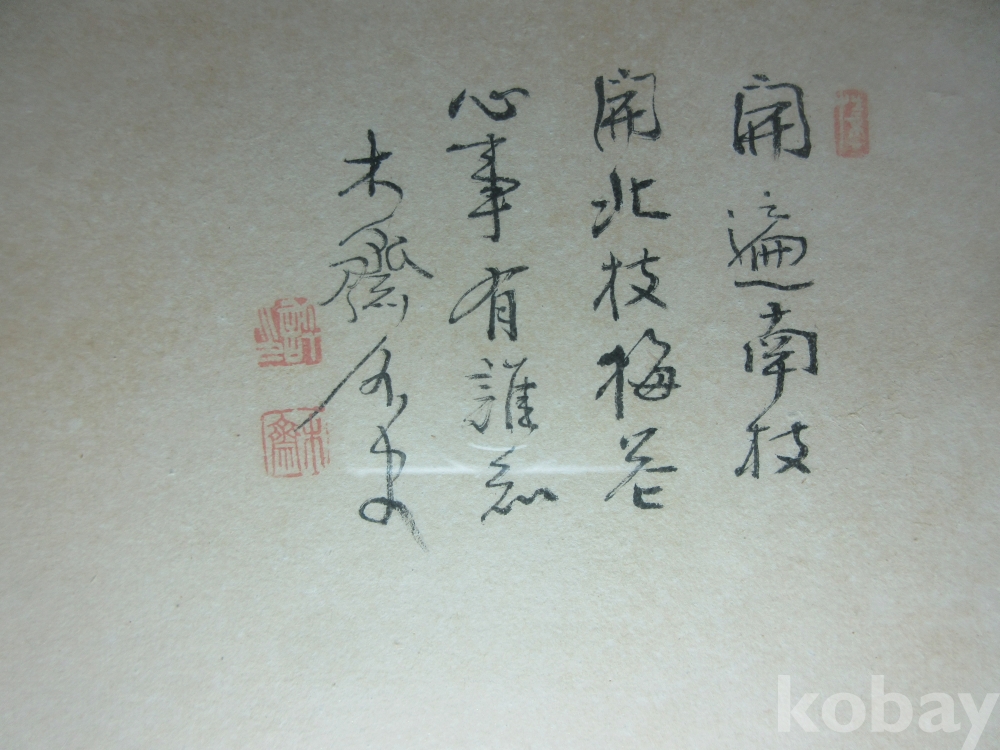 開遍南枝
開北枝梅花
心事有誰知
木齋外史
木齋
kobay